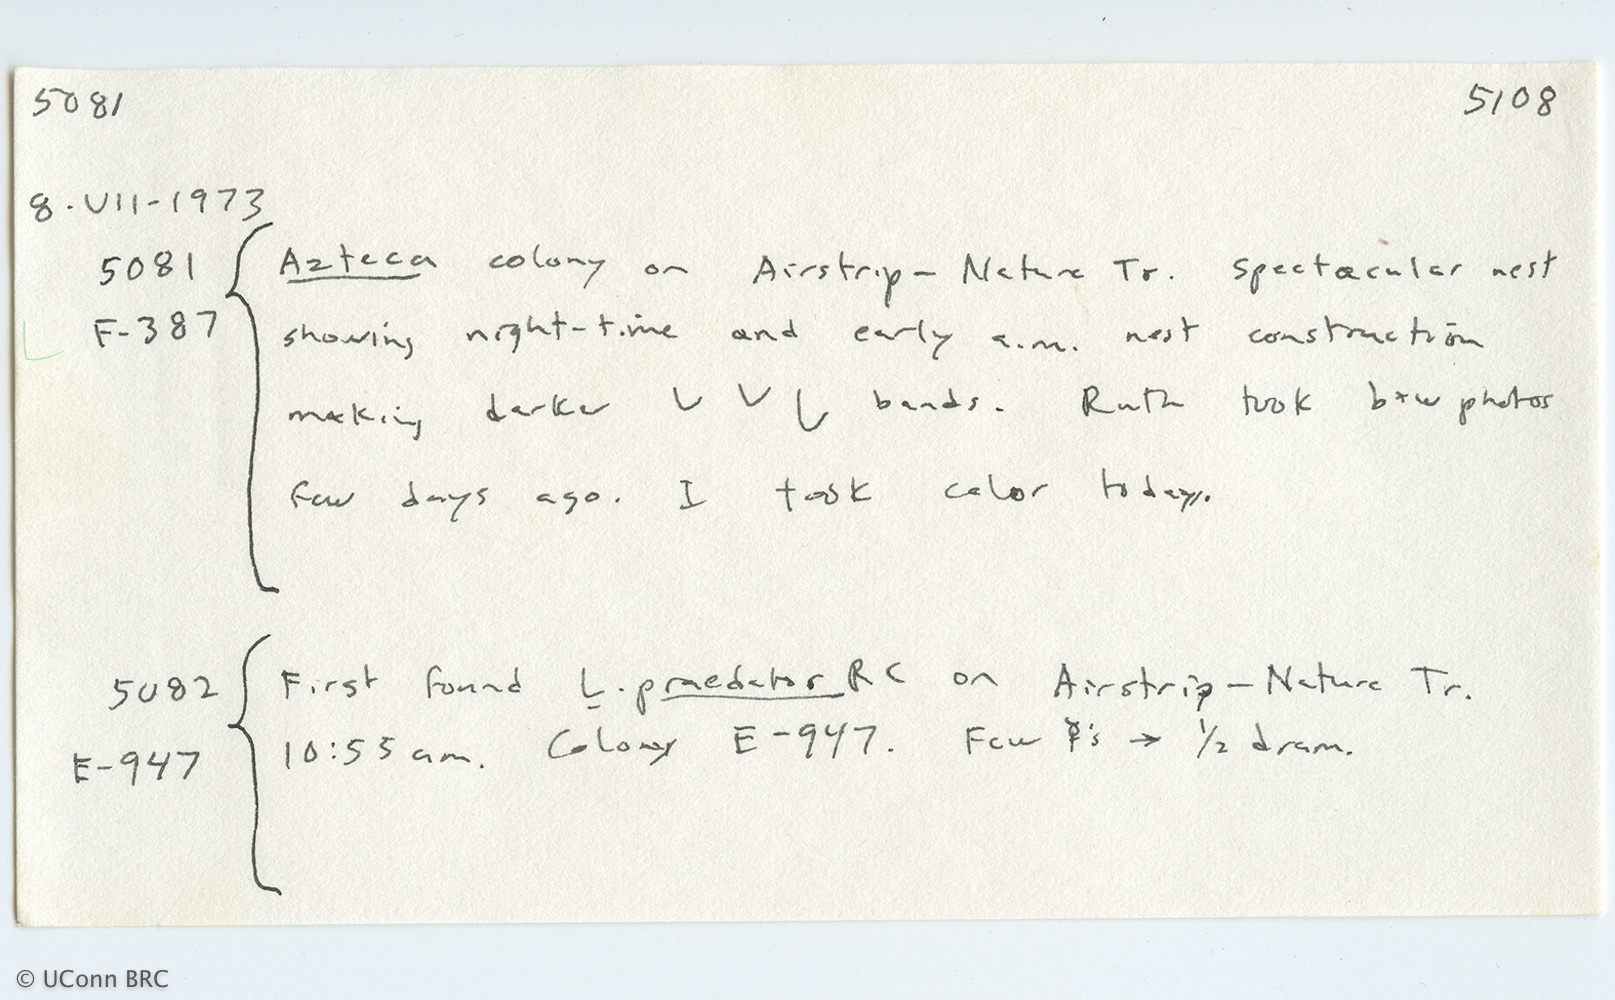 5081 5108
8-VII-1973
5081 Azteca colony on Airstrip-Nature Tr. Spectacular nest
F-387 showing night-time and early a.m. nest construction
making darker bands. Ruth took b+w photos
few days ago. I took color today.
5082 First found L. praedator RC on Airstrip-Nature Tr.
E-947 10:55 am. Colony E-947. Few ☿'s → 1/2 dram.
© UConn BRC